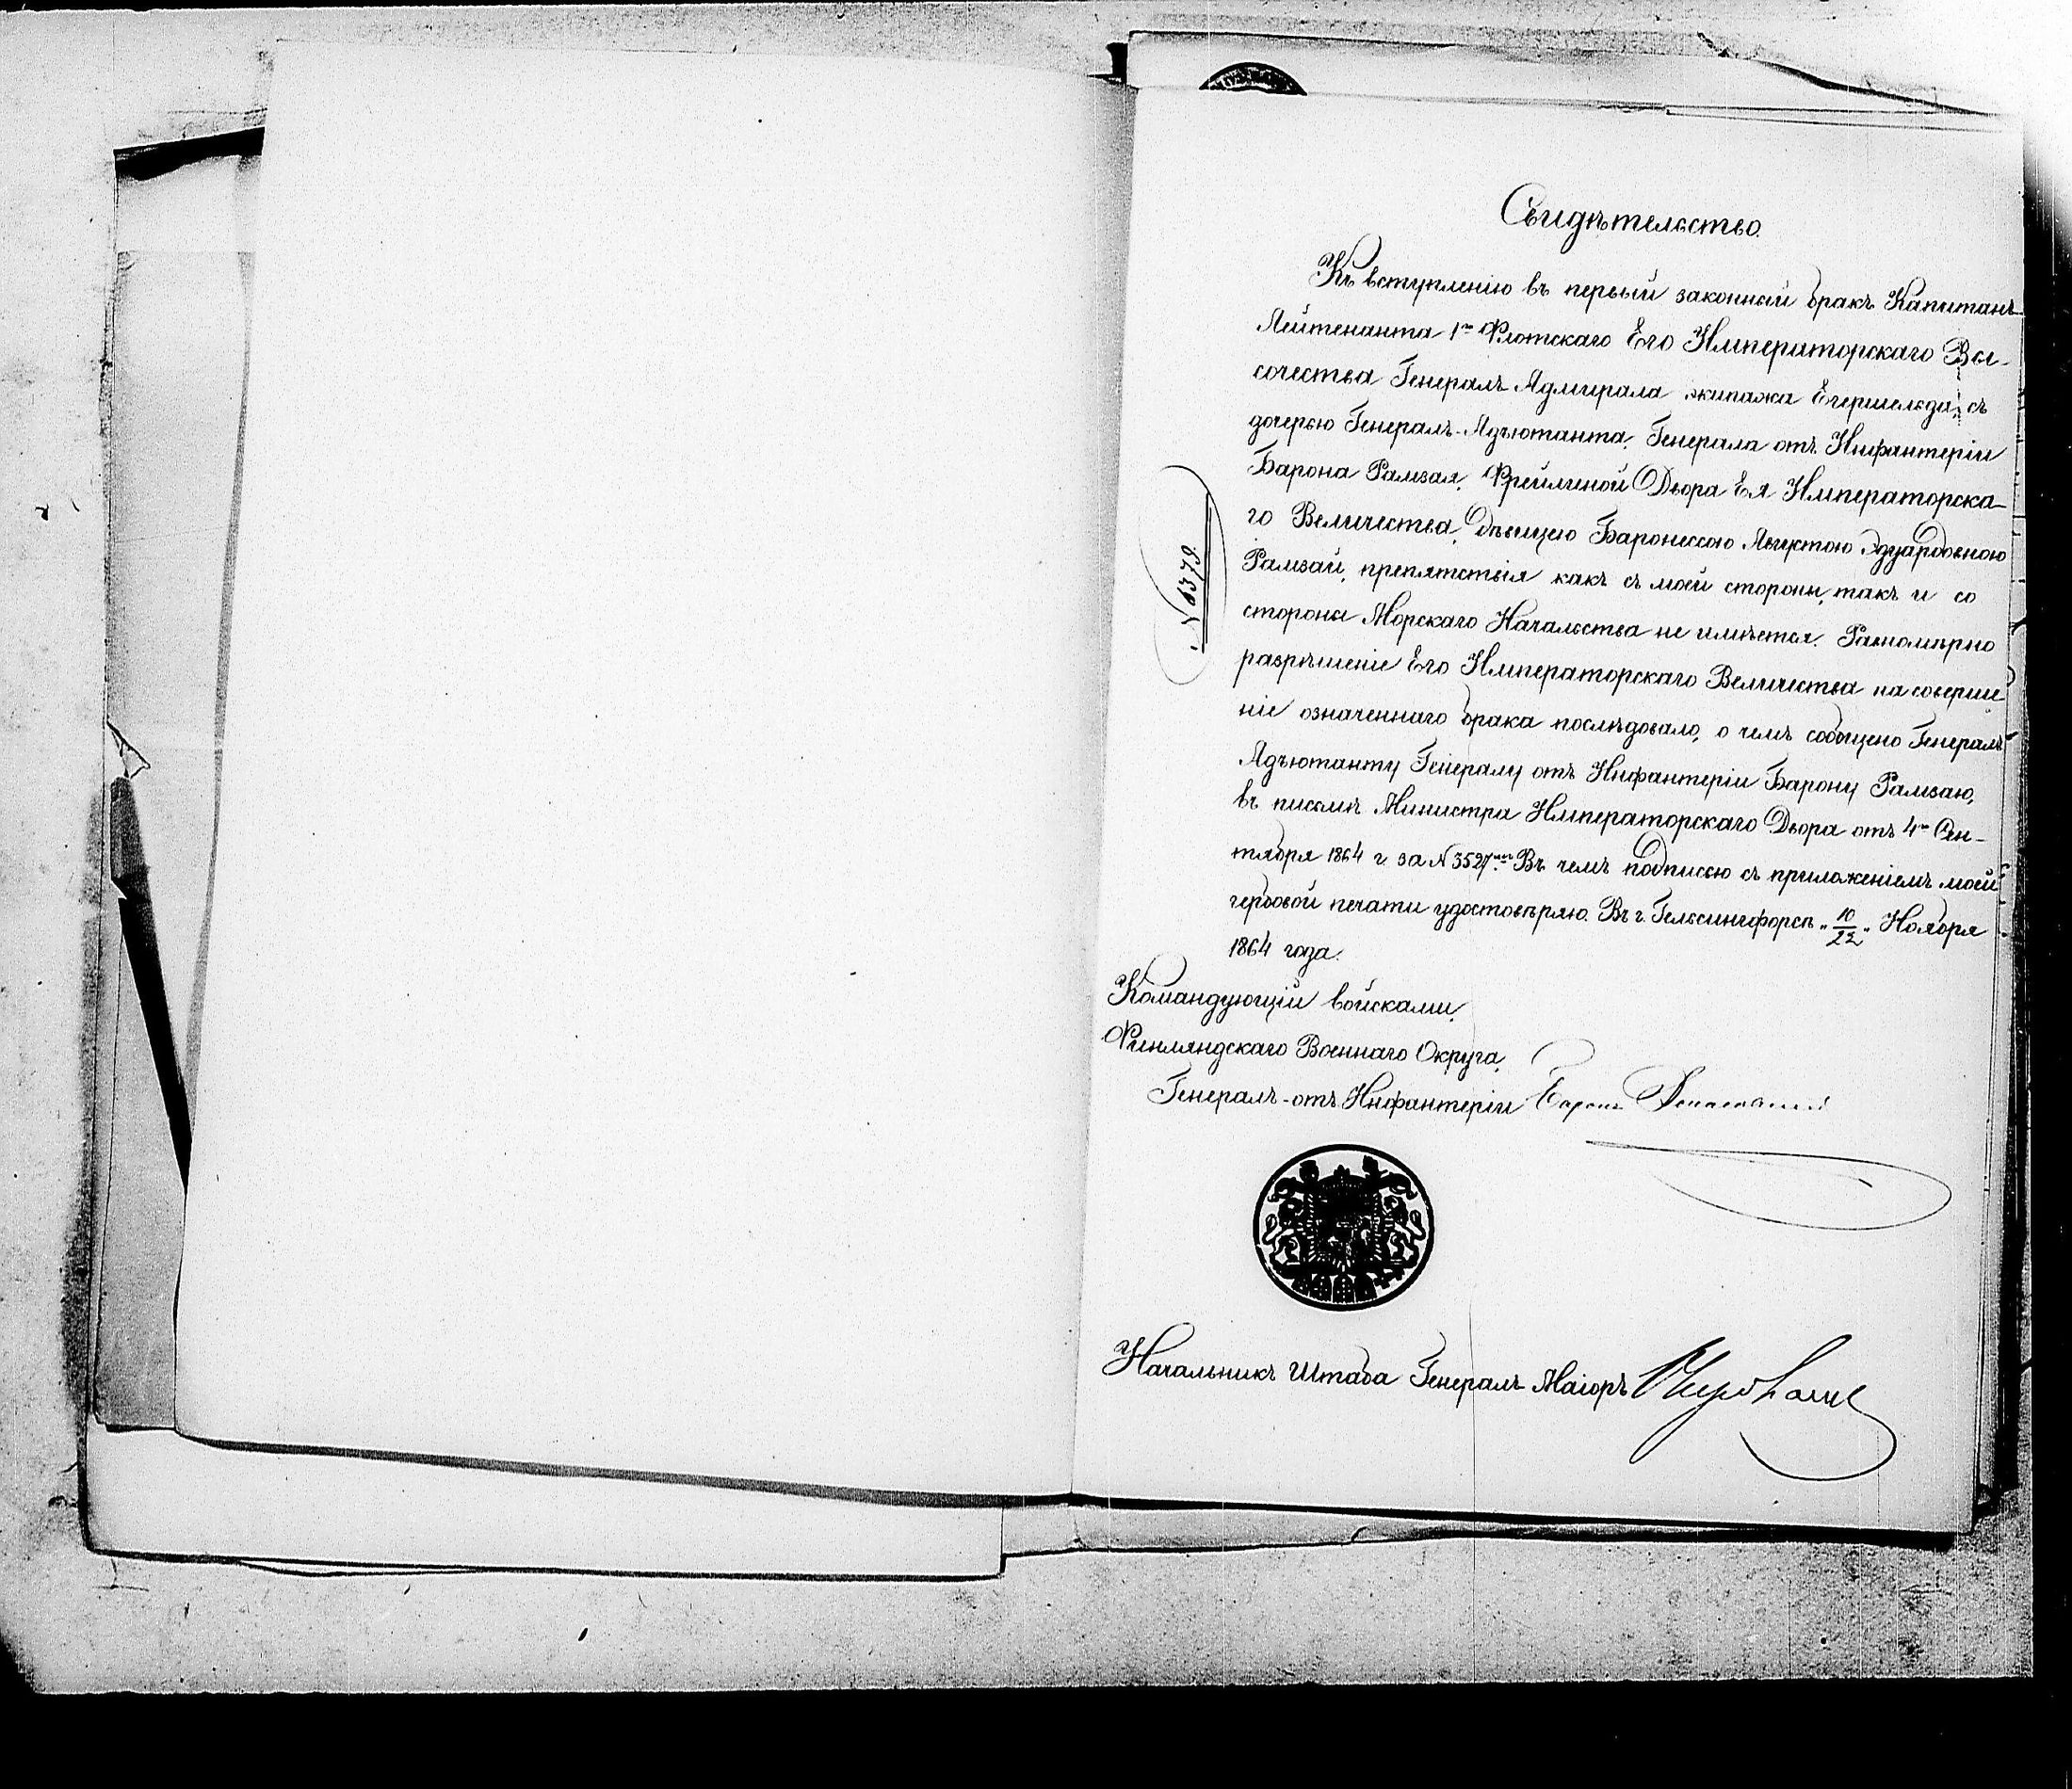 Свидѣтельство.
Къ вступленію въ первый законный бракъ Капитанъ-
Лейтенанта 1го Флотскаго Его Императорскаго Вы-
сочества Генералъ Адмирала экипажа Егершельда, съ
дочерью Генералъ-Адъютанта, Генерала отъ Инфантеріи
Барона Рамзая, Фрейлиной Двора Ея Императорска-
го Величества, дѣвицею Баронессою Августою Эдуардовною
Рамзай, препятствія какъ съ моей стороны, такъ и со
стороны Морскаго Начальства не имѣется. Равномѣрно
разрѣшеніе Его Императорскаго Величества на соверше-
ніе означеннаго брака послѣдовало, о чемъ сообщено Генералъ
Адъютанту Генералу отъ Инфантеріи Барону Рамзаю,
въ письмѣ Министра Императорскаго Двора отъ 4го Сен-
тября 1864 г за № 3527мъ. Въ чемъ подписью съ приложеніемъ моей
гербовой печати удостовѣряю. Въ г. Гельсингфорсѣ „10/22„ Ноября
1864 года.
№ 6379.
Командующій войсками,
Финляндскаго Военнаго Округа,
Генералъ-отъ-Инфантеріи Баронъ
Начальникъ Штаба Генералъ Маіоръ